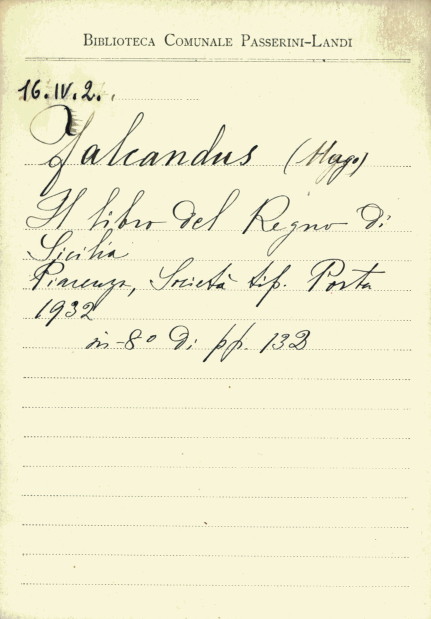 BIBLIOTECA COMUNALE PASSERINI-LANDI
16.IV.2.
Falcandus (Ugo)
Il libro del Regno di
Sicilia
Piacenza, Società tip. Porta
1932
in-8º di pp. 132